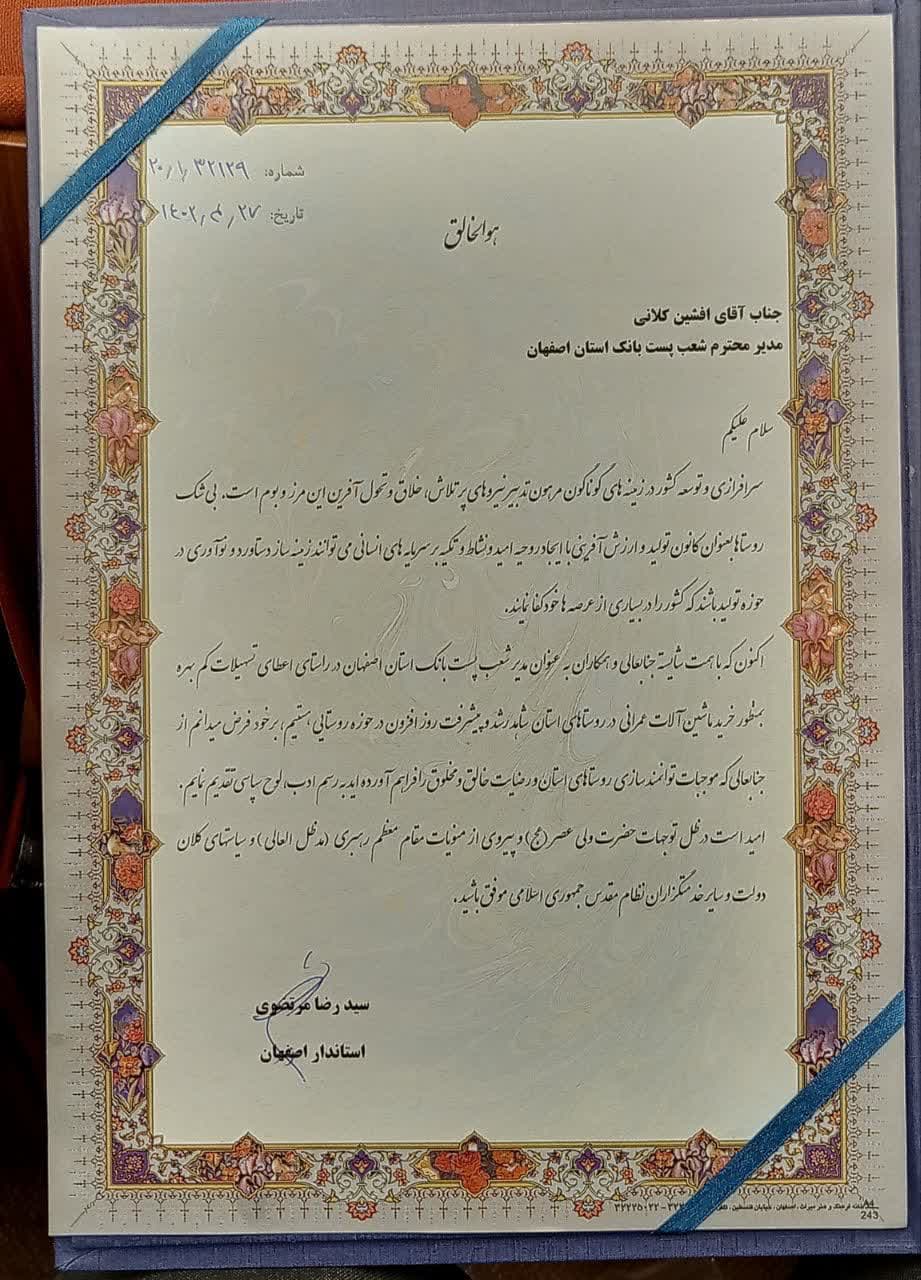 شماره: ۲۰/۱/۳۲۱۲۹
تاریخ: ۱۴۰۲/۴/۲۷
هوالخالق
جناب آقای افشین کلانی
مدیر محترم شعب پست بانک استان اصفهان
سلام علیکم
سرافرازی و توسعه کشور در زمینه های گوناگون مرهون تدبیر نیروهای پر تلاش، خلاق و تحول آفرین این مرز و بوم است. بی شک
روستاها بعنوان کانون تولید و ارزش آفرینی با ایجاد روحیه امید و نشاط و تکیه بر سرمایه های انسانی می توانند زمینه ساز دستاورد و نوآوری در
حوزه تولید باشند که کشور را در بسیاری از عرصه ها خودکفا نمایند.
اکنون که با همت شایسته جنابعالی و همکاران به عنوان مدیر شعب پست بانک استان اصفهان در راستای اعطای تسهیلات کم بهره
بمنظور خرید ماشین آلات عمرانی در روستاهای استان شاهد رشد و پیشرفت روز افزون در حوزه روستایی هستیم، بر خود فرض میدانم از
جنابعالی که موجبات توانمند سازی روستاهای استان و رضایت خالق و مخلوق را فراهم آورده اید به رسم ادب، لوح سپاسی تقدیم نمایم.
امید است در ظل توجهات حضرت ولی عصر (عج) و پیروی از منویات مقام معظم رهبری (مدظل العالی) و سیاستهای کلان
دولت و سایر خدمتگزاران نظام مقدس جمهوری اسلامی موفق باشید.
سید رضا مرتضوی
استاندار اصفهان
فرهنگ و هنر میراث - اصفهان، خیابان فلسطین، ۳۲۲۲۵۰۲۲
A4
243